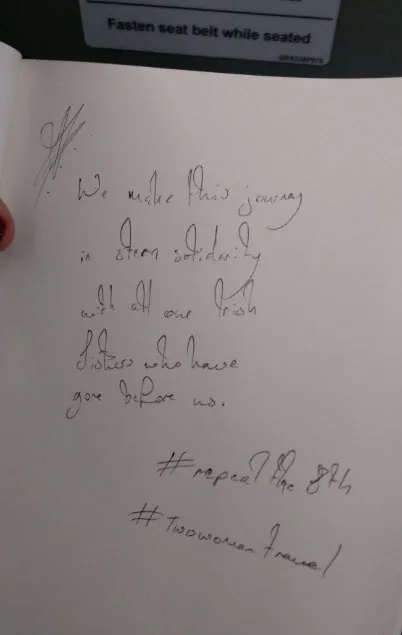 Fasten seat belt while seated
We make this journey
in stern solidarity
with all our Irish
Sisters who have
gone before us.
#repeal the 8th
#twowomentravel